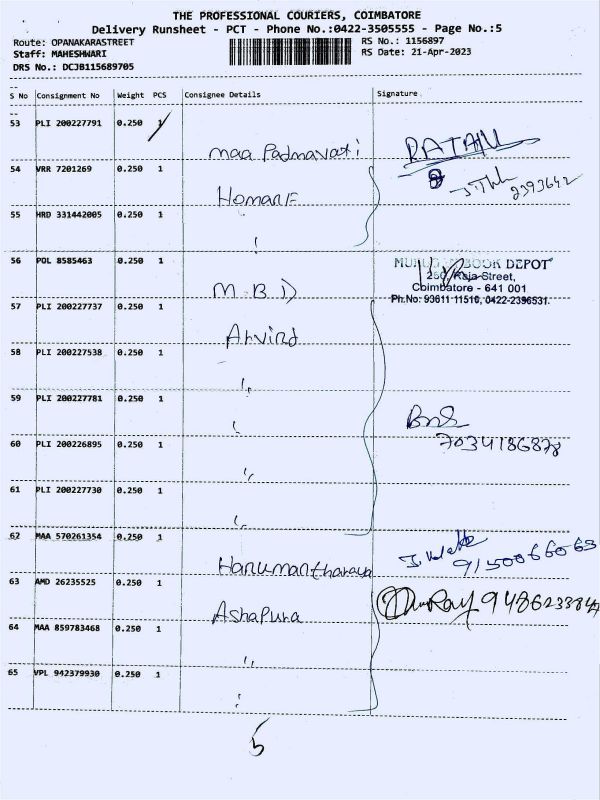 THE PROFESSIONAL COURIERS, COIMBATORE
Delivery Runsheet - PCT - Phone No.:0422-3505555 - Page No.:5
Route: OPANAKARASTREET
RS No.: 1156897
Staff: MAHESHWARI
RS Date: 21-Apr-2023
DRS No.: DCJB115689705
S No Consignment No Weight PCS Consignee Details Signature
53 PLI 200227791 0.250 1
Maa Padmavati
RATAN
54 VRR 7201269 0.250 1
Homare
2393642
55 HRD 331442005 0.250 1
56 POL 8585463 0.250 1
M.B.D
BOOK DEPOT
250, Raja Street,
Coimbatore - 641 001
Ph.No: 93611 11510, 0422-2396531.
57 PLI 200227737 0.250 1
Arvind
58 PLI 200227538 0.250 1
59 PLI 200227781 0.250 1
7034186878
60 PLI 200226895 0.250 1
61 PLI 200227730 0.250 1
62 MAA 570261354 0.250 1
Hanumantharaya
9150066063
63 AMD 26235525 0.250 1
Ashapura
64 MAA 859783468 0.250 1
65 VPL 942379930 0.250 1
5